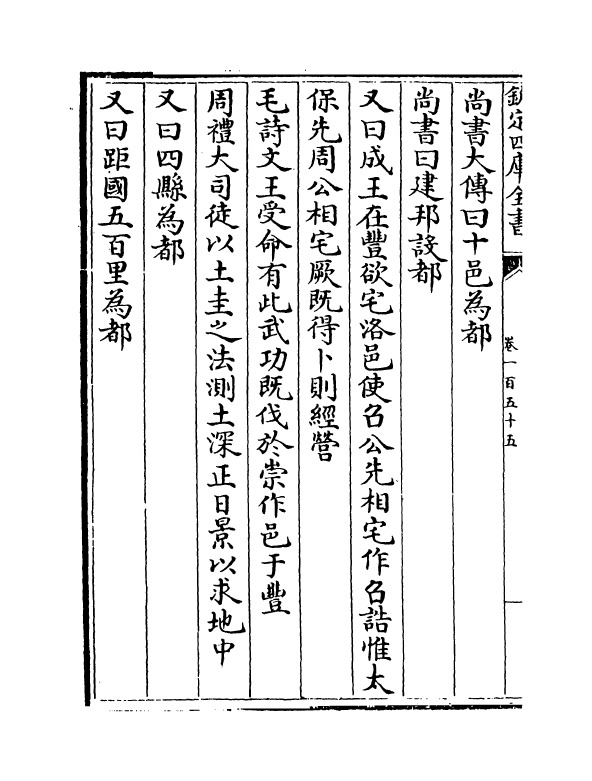 欽定四庫全書
卷一百五十五
尚書大傳曰十邑為都
尚書曰建邦設都
又曰成王在豐欲宅洛邑使召公先相宅作召誥惟太
保先周公相宅厥既得卜則經營
毛詩文王受命有此武功既伐於崇作邑于豐
周禮大司徒以土圭之法測土深正日景以求地中
又曰四縣為都
又曰距國五百里為都